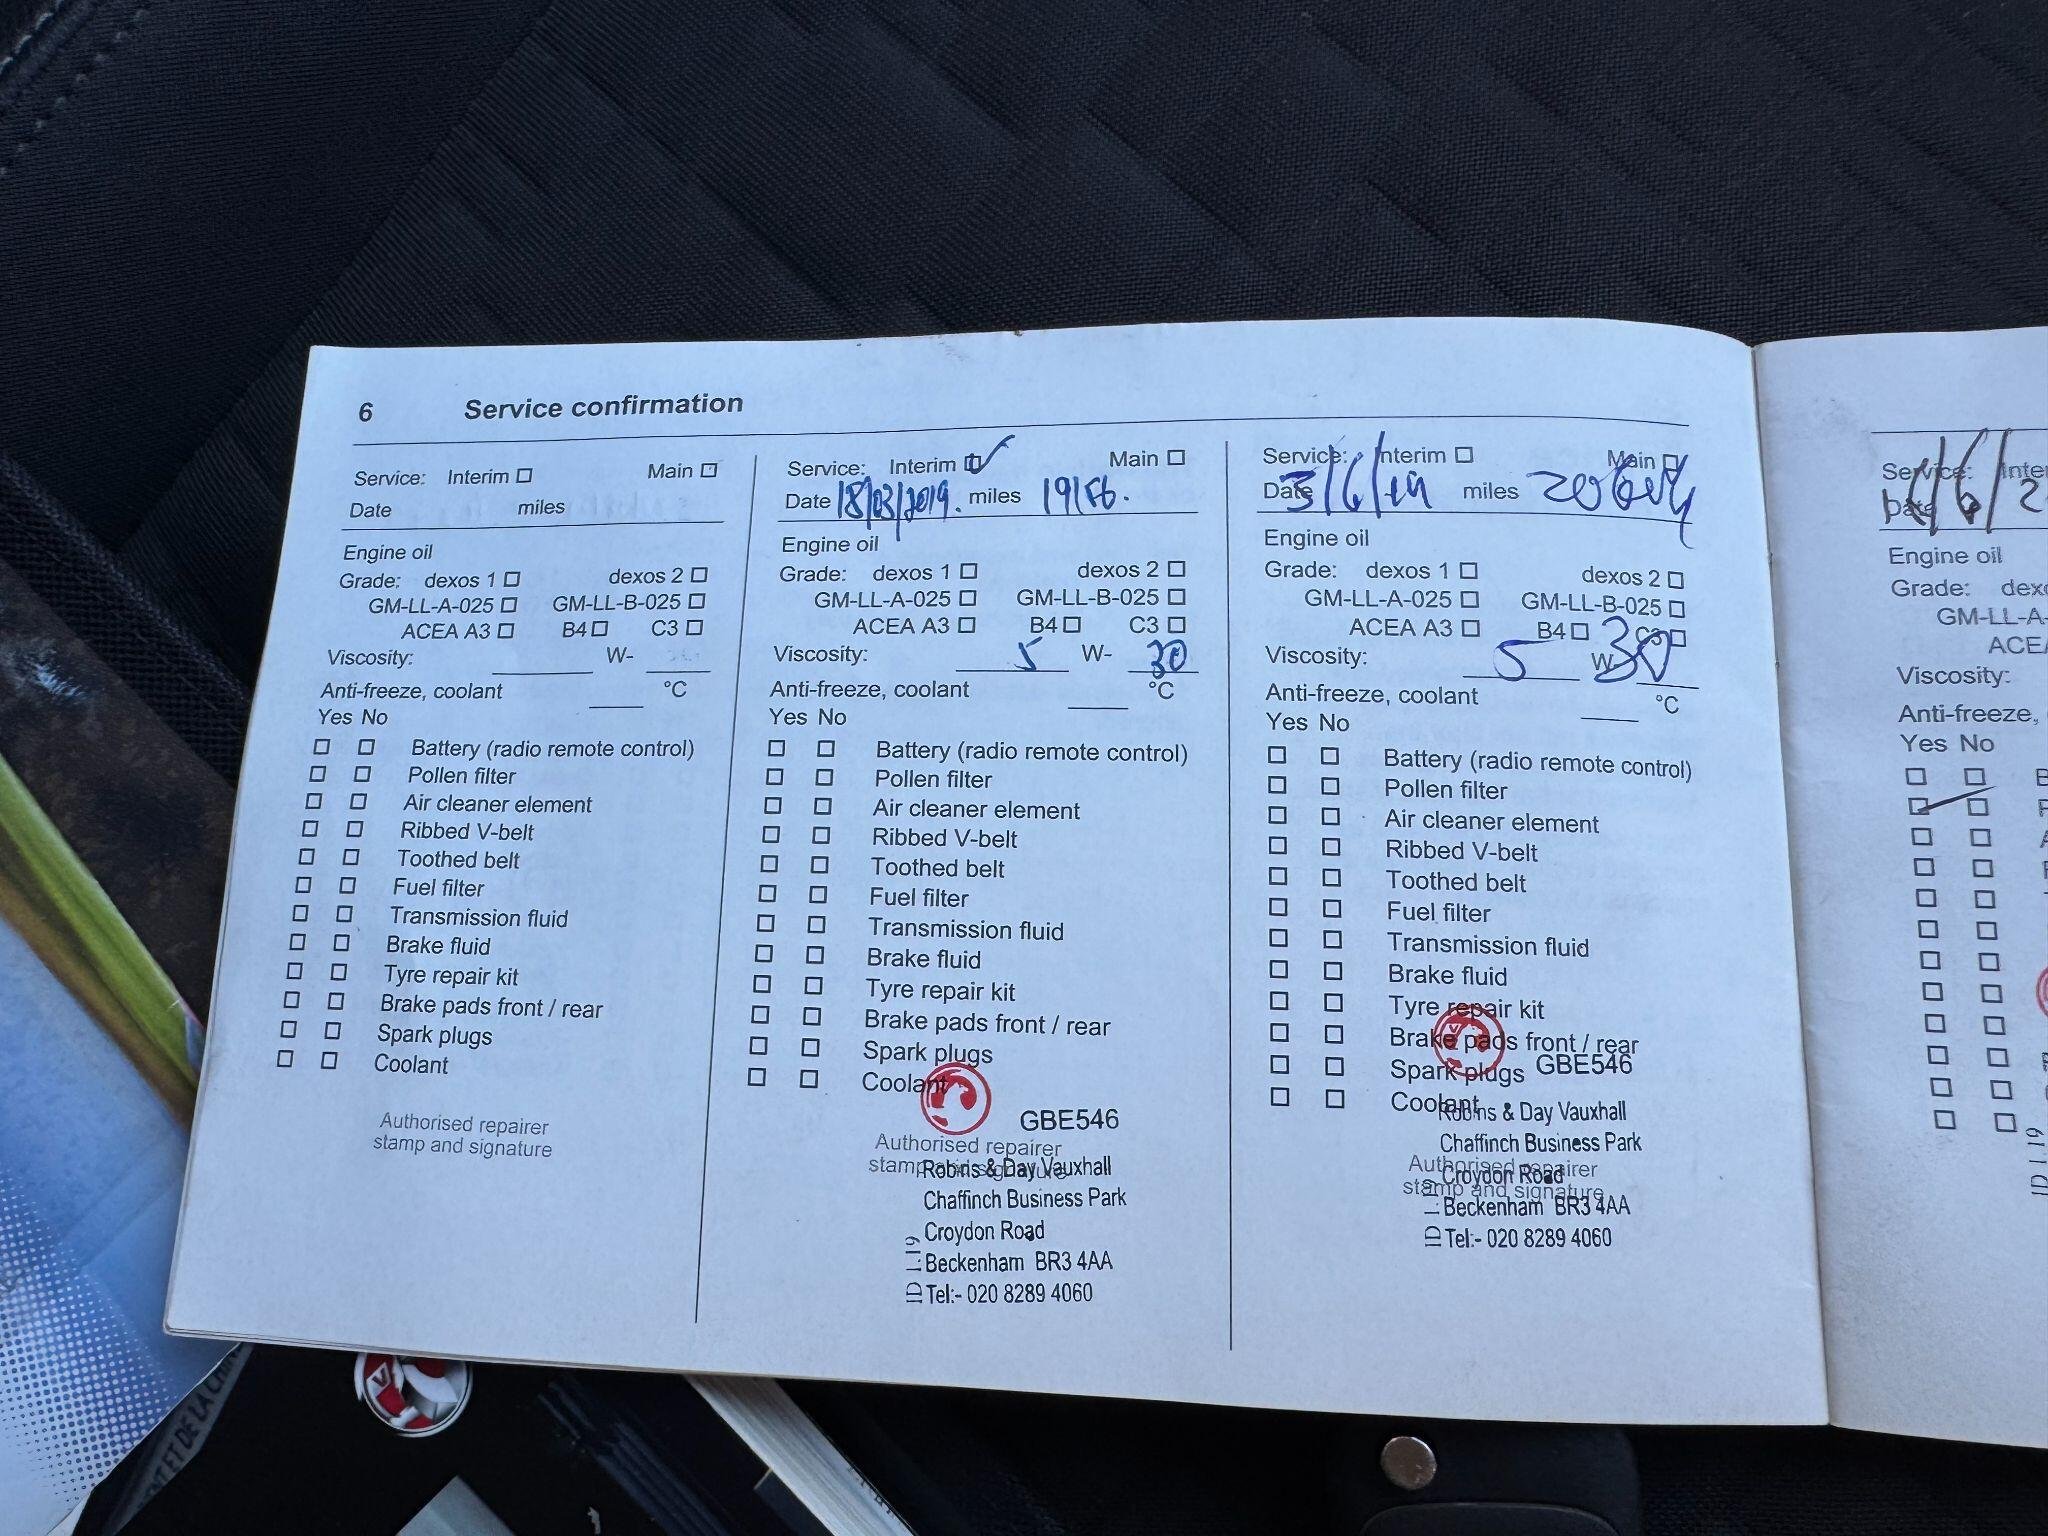 6 Service confirmation
Service: Interim Main
Date miles
Engine oil
Grade: dexos 1 dexos 2
GM-LL-A-025 GM-LL-B-025
ACEA A3 B4 C3
Viscosity: W-
Anti-freeze, coolant °C
Yes No
Battery (radio remote control)
Pollen filter
Air cleaner element
Ribbed V-belt
Toothed belt
Fuel filter
Transmission fluid
Brake fluid
Tyre repair kit
Brake pads front / rear
Spark plugs
Coolant
Authorised repairer
stamp and signature
Service: Interim Main
Date 18/03/2019. miles
Engine oil
Grade: dexos 1 dexos 2
GM-LL-A-025 GM-LL-B-025
ACEA A3 B4 C3
Viscosity: 5 W- 30
Anti-freeze, coolant °C
Yes No
Battery (radio remote control)
Pollen filter
Air cleaner element
Ribbed V-belt
Toothed belt
Fuel filter
Transmission fluid
Brake fluid
Tyre repair kit
Brake pads front / rear
Spark plugs
Coolant
GBE546
Authorised repairer
stamp and signature
Robins & Day Vauxhall
Chaffinch Business Park
Croydon Road
Beckenham BR3 4AA
Tel:- 020 8289 4060
ID 1.19
Service: Interim Main
Date 3/6/19 miles
Engine oil
Grade: dexos 1 dexos 2
GM-LL-A-025 GM-LL-B-025
ACEA A3 B4 C3
Viscosity: 5 W- 30
Anti-freeze, coolant °C
Yes No
Battery (radio remote control)
Pollen filter
Air cleaner element
Ribbed V-belt
Toothed belt
Fuel filter
Transmission fluid
Brake fluid
Tyre repair kit
Brake pads front / rear
Spark plugs
Coolant
GBE546
Robins & Day Vauxhall
Chaffinch Business Park
Croydon Road
Authorised repairer
stamp and signature
Beckenham BR3 4AA
Tel:- 020 8289 4060
Service: Inte
Date
Engine oil
Grade: dexo
GM-LL-A-
ACEA
Viscosity:
Anti-freeze,
Yes No
ID 1.19
ET DE LA